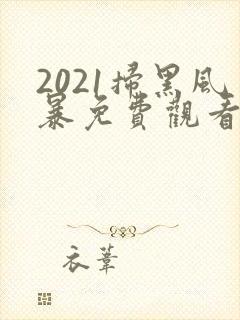 2021掃黑风
暴免費觀看
衣葦